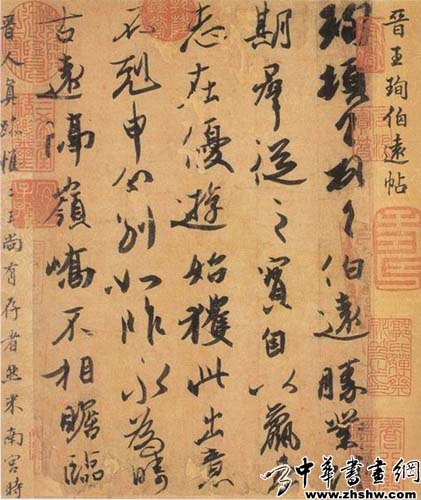 晋王珣伯遠帖
珣頓首頓首伯遠勝業情
期羣從之寶自以羸患
志在優遊始獲此出意
不剋申分別如昨永為疇
古遠隔嶺嶠不相瞻臨
晋人真跡惟二王尚有存者然米南宮時
中华书画网
www.zhshw.com